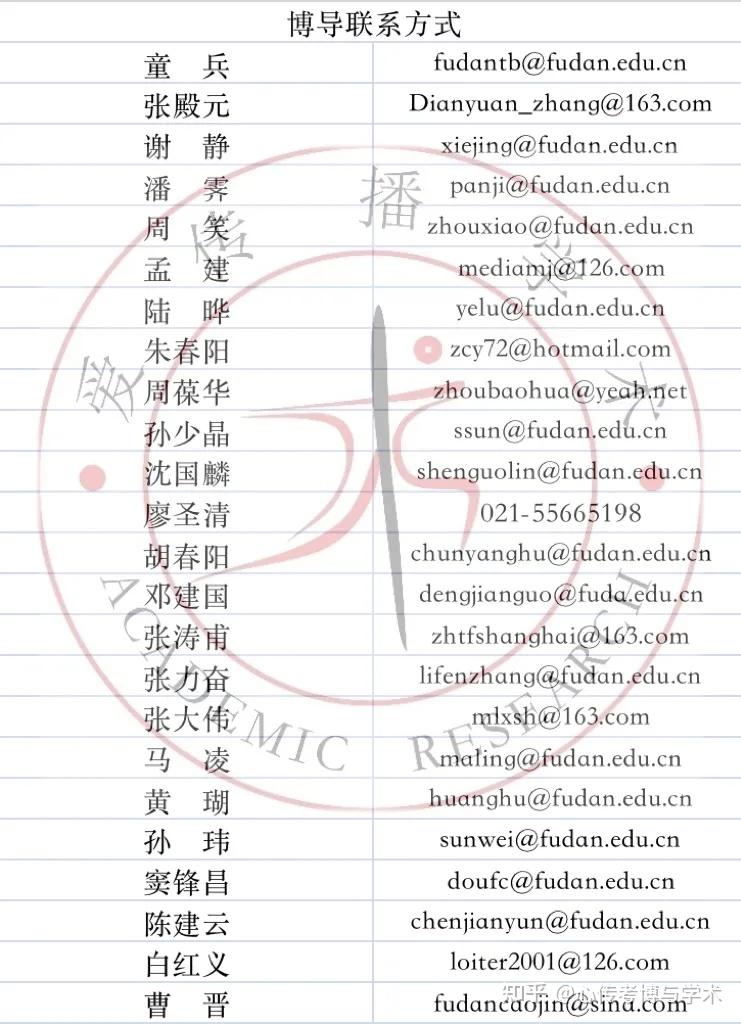 博导联系方式
童 兵 fudantb@fudan.edu.cn
张殿元 Dianyuan_zhang@163.com
谢 静 xiejing@fudan.edu.cn
潘 霁 panji@fudan.edu.cn
周 笑 zhouxiao@fudan.edu.cn
孟 建 mediamj@126.com
陆 晔 yelu@fudan.edu.cn
朱春阳 zcy72@hotmail.com
周葆华 zhoubaohua@yeah.net
孙少晶 ssun@fudan.edu.cn
沈国麟 shenguolin@fudan.edu.cn
廖圣清 021-55665198
胡春阳 chunyanghu@fudan.edu.cn
邓建国 dengjianguo@fuda.edu.cn
张涛甫 zhtfshanghai@163.com
张力奋 lifenzhang@fudan.edu.cn
张大伟 mlxsh@163.com
马 凌 maling@fudan.edu.cn
黄 瑚 huanghu@fudan.edu.cn
孙 玮 sunwei@fudan.edu.cn
窦锋昌 doufc@fudan.edu.cn
陈建云 chenjianyun@fudan.edu.cn
白红义 loiter2001@126.com
曹 晋 fudancaojin@sina.com
爱传播学术
ACADEMIC RESEARCH
知乎 @心传考博与学术